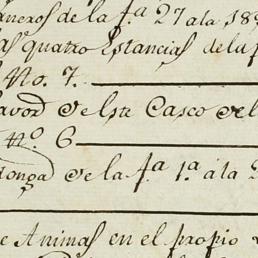 aneros de la f.a 27 ala 18
as quatro Estancias delu
No. 7.
avor de este Casco del
N.o 6
donga de la f.a 1.a ála 2
e Animas en el propio